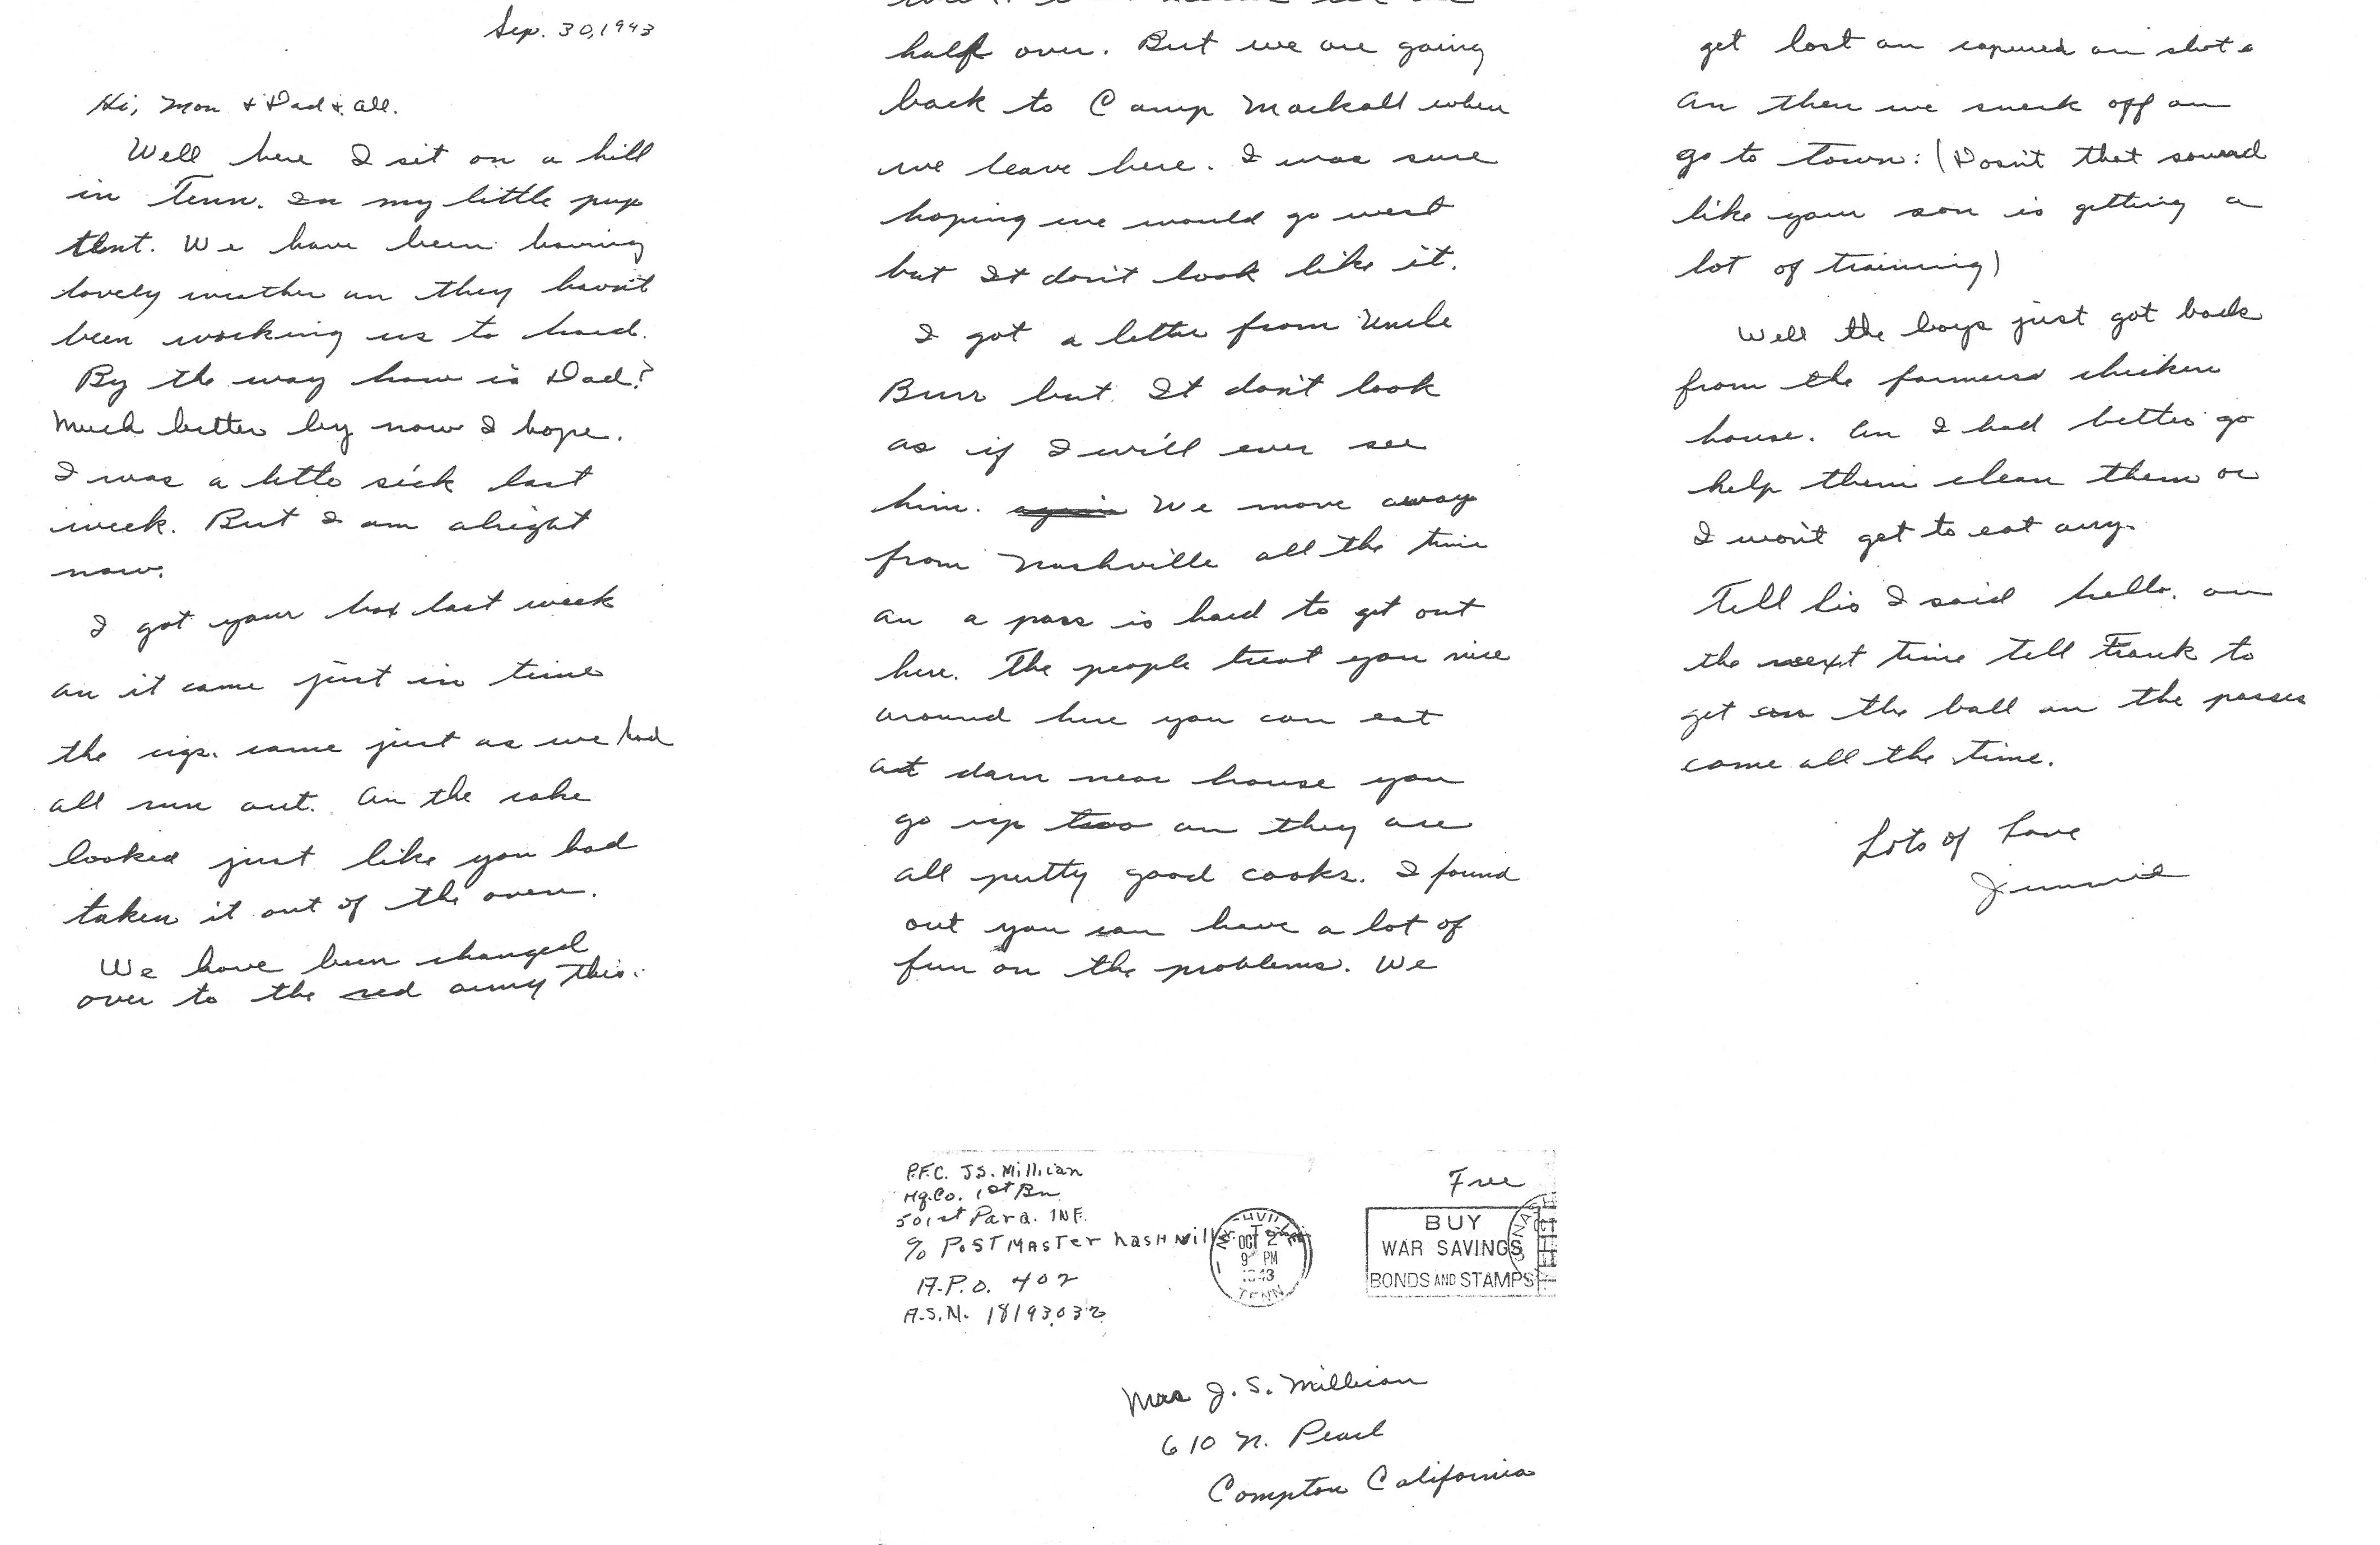 Sep. 30, 1943
Hi, Mon + Dad + all.
Well here I sit on a hill
in Tenn. In my little pup
tent. We have been having
lovely weather an they havn't
been working us to hard.
By the way how is Dad?
Much better by now I hope.
I was a little sick last
week. But I am alright
now.
I got your box last week
an it came just in time
the cigs. came just as we had
all run out. An the cake
looked just like you had
taken it out of the oven.
We have been changed
over to the red army this.
half over. But we are going
back to Camp Mackall when
we leave here. I was sure
hoping we would go west
but It don't look like it.
I got a letter from Uncle
Burr but. It don't look
as if I will ever see
him. again We move away
from Nashville all the time
an a pass is hard to get out
here. The people treat you nice
around here you can eat
at dam near house you
go up too an they are
all putty good cooks. I found
out you can have a lot of
fun on the problems. We
get lost an capured an shot
an then we sneek off an
go to town: (Dosn't that sound
like your son is getting a
lot of training)
Well the boys just got back
from the farmers chicken
house. An I had better go
help them clean them or
I won't get to eat any.
Tell Sis I said hello. an
the next time tell Frank to
get on the ball an the passes
come all the time.
Lots of Love
Jimmie
P.F.C. J.S. Millican
Hq.Co. 1st Bn
501st Para. INF.
% POSTMASTer NASHVille
A.P.O. 402
A.S.N. 18193032
NASHVILLE
OCT 2
9 PM
1943
TENN
Free
BUY
WAR SAVINGS
BONDS AND STAMPS
Mrs J. S. Millican
610 N. Pearl
Compton California